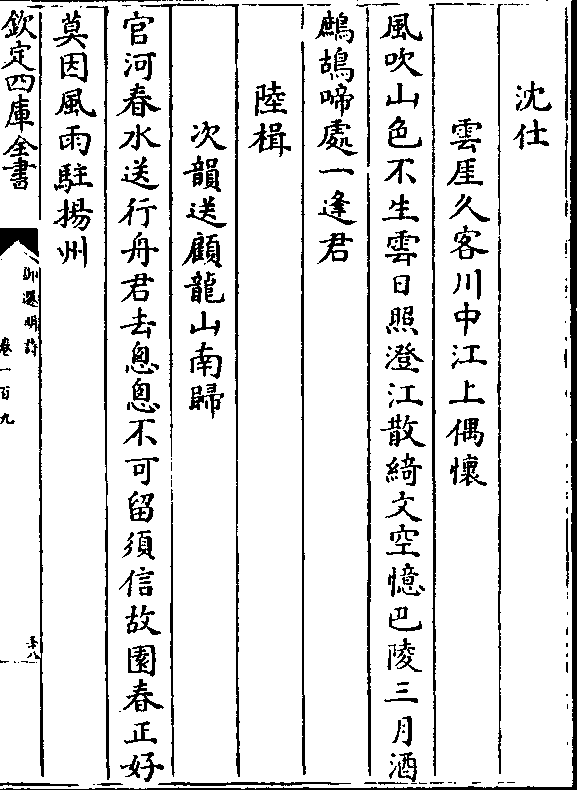 沈仕
雲厓久客川中江上偶懷
風吹山色不生雲日照澄江散綺文空憶巴陵三月酒
鷓鴣啼處一逢君
陸楫
次韻送顧龍山南歸
官河春水送行舟君去怱怱不可留須信故園春正好
莫因風雨駐揚州
欽定四庫全書
御選明詩
卷一百九